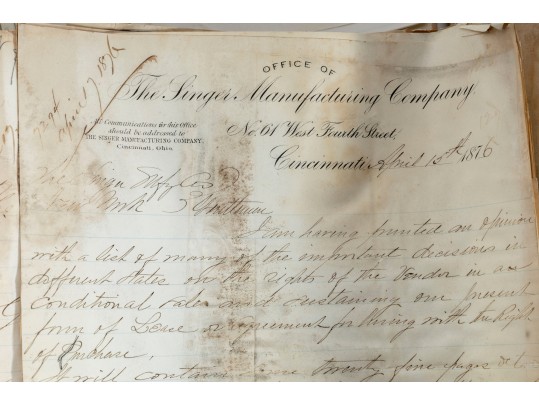 OFFICE OF
The Singer Manufacturing Company
All Communications for this Office
should be addressed to
THE SINGER MANUFACTURING COMPANY,
Cincinnati, Ohio.
No. 61 West Fourth Street,
Cincinnati April 15th 1876
April 17 1876
The Singer Mfg Co
New York Gentlemen
I am having printed an opinion
with a list of many of the important decisions in
different states on the rights of the Vendor in an
Conditional sales and sustaining our present
form of Lease or agreement for hiring with the Right
of Purchase.
It will contain some twenty five pages &